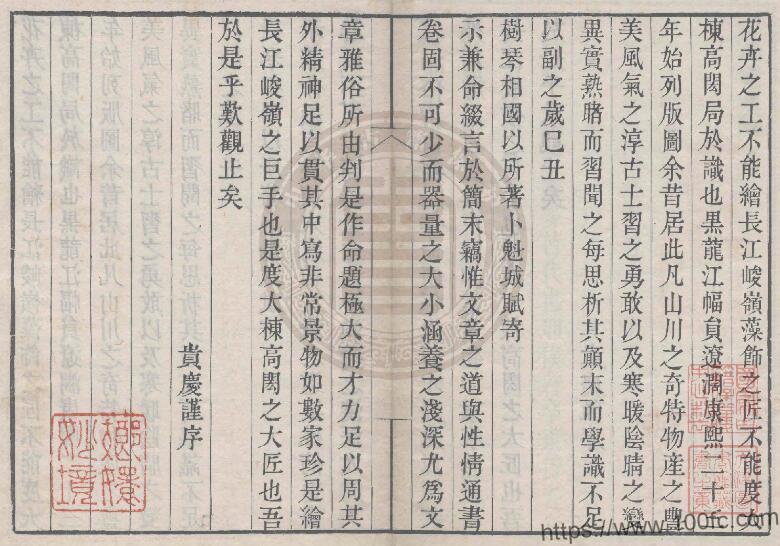 花卉之工不能繪長江峻嶺藻飾之匠不能度大
棟高閎局於識也黑龍江幅員遼濶康熙二十
年始列版圖余昔居此凡山川之奇特物產之豐
美風氣之淳古士習之勇敢以及寒暖陰晴之變
異實熟睹而習聞之每思析其顛末而學識不足
以副之歲巳丑
樹琴相國以所著卜魁城賦寄
示兼命綴言於簡末竊惟文章之道與性情通書
卷固不可少而器量之大小涵養之淺深尤爲文
章雅俗所由判是作命題極大而才力足以周其
外精神足以貫其中寫非常景物如數家珍是繪
長江峻嶺之巨手也是度大棟高閎之大匠也吾
於是乎歎觀止矣
貴慶謹序
嫏嬛妙境
https://www.100fc.com